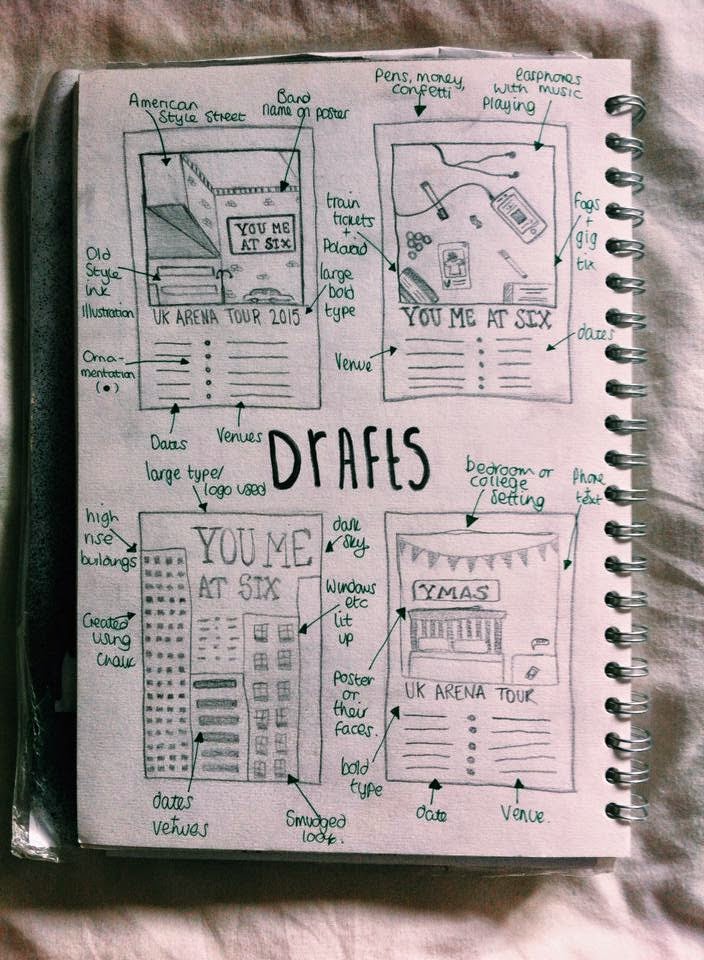 American
Style Street
Band
name on poster
YOU ME
AT SIX
Old
Style
ink
Illustration
UK ARENA TOUR 2015
large
bold
type
Orna-
mentation
(●)
Dates
Venues
Pens, money,
confetti
earphones
with music
playing
train
tickets
+
Polaroid
Fags
+
gig
tix
YOU ME AT SIX
Venue
dates
DrAFtS
large type/
logo used
high
rise
buildings
YOU ME
AT SIX
dark
sky
Created
using
Chalk
Windows
etc
lit
up
dates
+
venues
Smudged
look.
bedroom or
college
setting
Phone
+
text
YMAS
Poster
or
their
faces.
UK ARENA TOUR
bold
type
date
Venue.